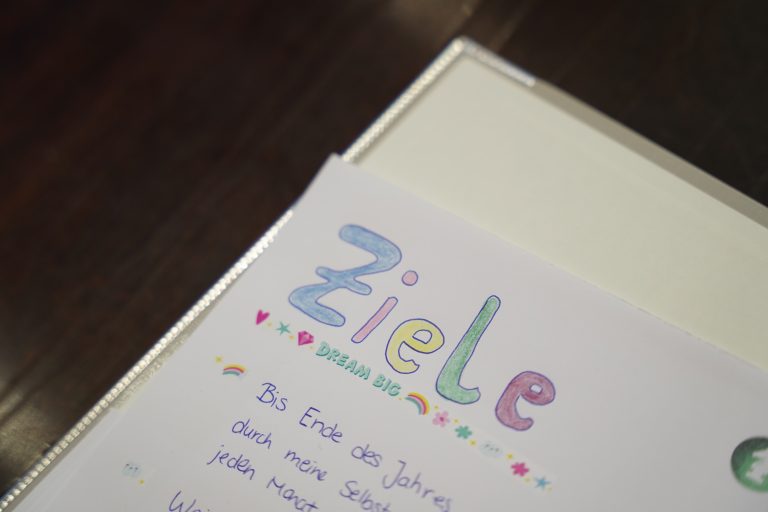 Ziele
DREAM BIG
Bis Ende des Jahres
durch meine Selbst
jeden Monat